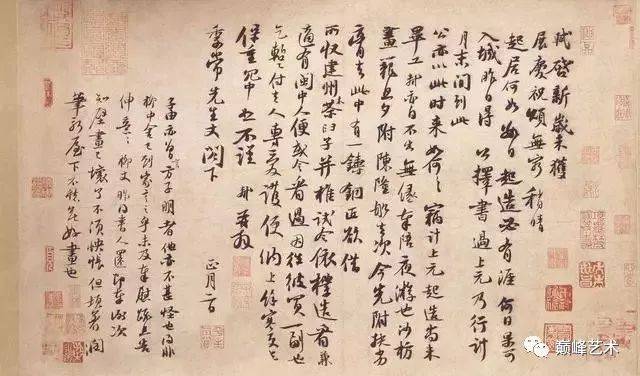 軾啓新歲未獲
展慶祝頌無窮稍晴
起居何如數日起造必有涯何日果可
入城昨日得公擇書過上元乃行計
月末間到此
公亦以此時來如何々竊計上元起造尚未
畢工軾亦自不出無緣奉陪夜游也沙枋
畫籠旦夕附陳隆舡去次今先附扶劣
膏去此中有一鑄銅匠欲借
所收建州木茶臼子并椎試令依樣造看兼
適有閩中人便或令看過因往彼買一副也
乞暫付去人專愛護便納上餘寒更乞
保重冗中恕不謹軾再拜
季常先生丈閣下
正月二日
子由亦曾言方子明者他亦不甚怪也得非
柳中舍已到家言之乎未及奉慰疏且告
伸意々柳丈昨得書人還即奉謝次
知壁畫已壞了不須怏悵但頓著潤
筆新屋下不愁無好畫也
巅峰艺术